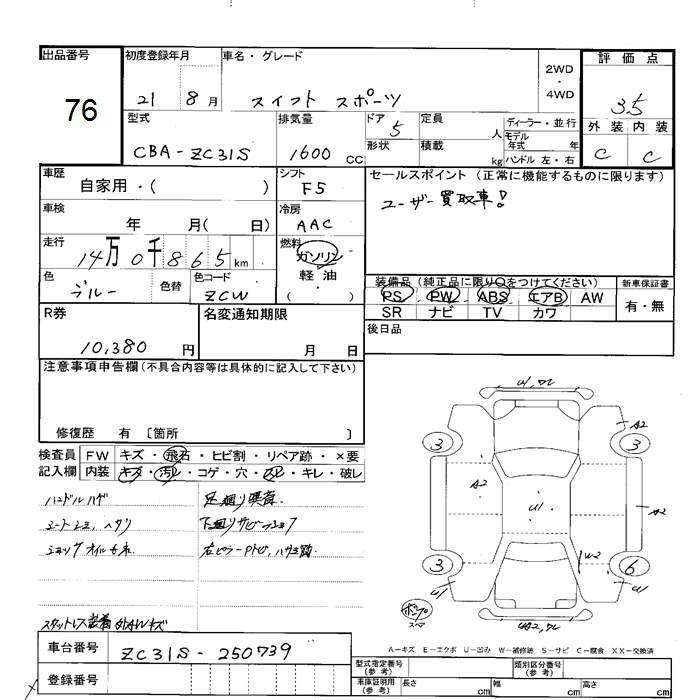 出品番号
76
初度登録年月
21 8月
車名・グレード
スイフト スポーツ
2WD
・
4WD
評価点
3.5
外装 内装
C C
型式
CBA-ZC31S
排気量
1600 CC
ドア 5
形状
定員 人
積載 kg
ディーラー・並行
モデル年式 年
ハンドル 左・右
車歴
自家用・( )
シフト
F5
セールスポイント (正常に機能するものに限ります)
ユーザー買取車!
車検
年 月( 日)
冷房
AAC
走行
14万0千865km
燃料
ガソリン
軽油
( )
色
ブルー
色替
色コード
ZCW
装備品 (純正品に限り○をつけてください)
PS PW ABS エアB AW
SR ナビ TV カワ
新車保証書
有・無
R券
10,380 円
名変通知期限
月 日
後日品
注意事項申告欄(不具合内容等は具体的に記入して下さい)
修復歴 有 〔箇所 〕
検査員記入欄
FW キズ・飛石・ヒビ割・リペア跡・×要
内装 キズ・汚レ・コゲ・穴・スレ・キレ・破レ
ハンドルハゲ
シートシミ、ヘタリ
下廻りサビ
U1
A2
3
3
A2
U1
A2
W2
3
6
U1
U1
A-キズ E-エクボ U-凹み W-補修跡 S-サビ C-腐食 XX-交換済
車台番号
ZC31S-250739
登録番号
型式指定番号(参考)
類別区分番号(参考)
車庫証明用(参考)
長さ cm
幅 cm
高さ cm